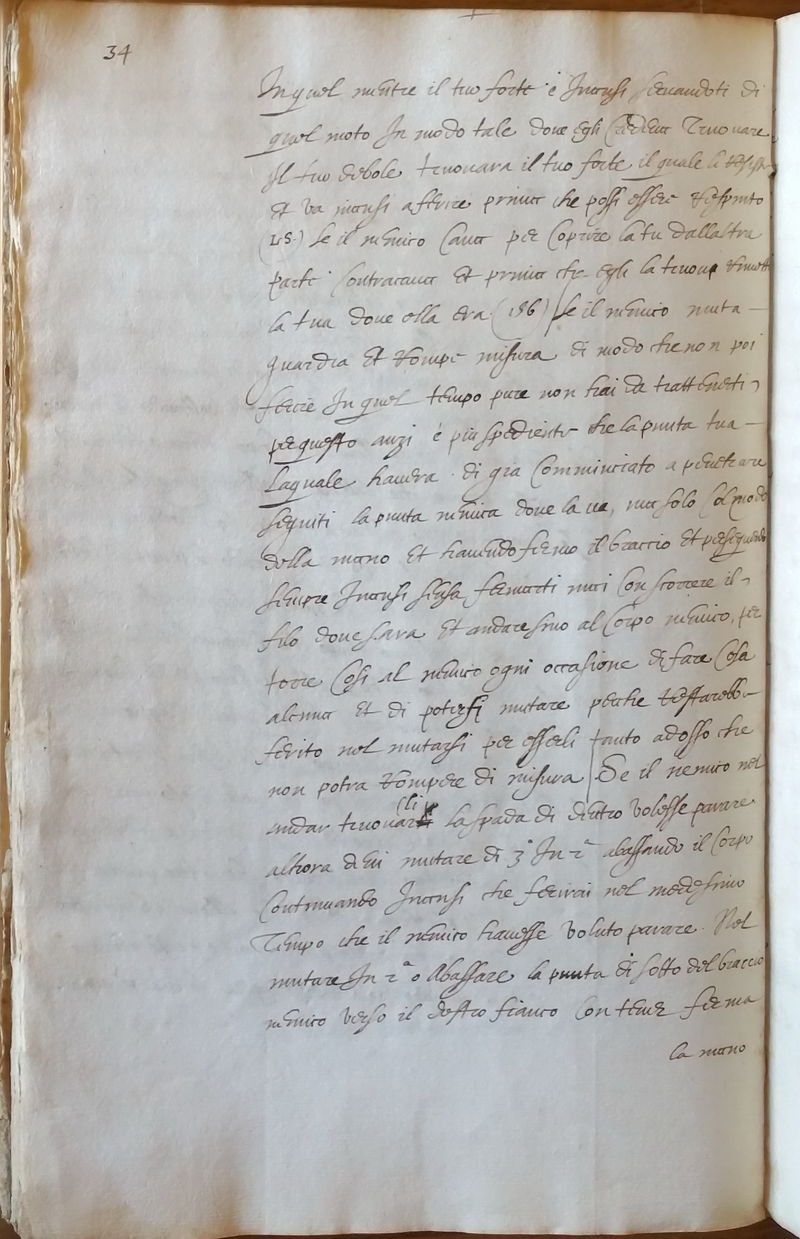 34
In quel mentre il tuo forte è Inansi servandoti di
quel moto In modo tale dove egli credeva Trovare
Il tuo debole trovara il tuo forte il quale li resista
Et va inansi a ferire prima che possi essere respinto
se il nemico cava per coprire la tu dall altra
parte contracava Et prima che egli la trova rimetti
la tua dove ella era (186) se il nemico muta
guardia Et rompe misura di modo che non poi
ferire In quel tempo pure non hai da trattenerti
per questo anzi è piu spediente che la punta tua
Laquale havera di gia comminciato a penetrare
seguiti la punta nemica dove la va, ma solo col modo
della mano Et havendo fermo il braccio Et perseguendo
sempre Inansi sensa fermarti mai con scorrere il
filo dove sara Et andare sino al corpo nemico, per
torre cosi al nemico ogni occasione di fare cosa
alcuna Et di potersi mutare perche restarebbe
ferito nel mutarsi per esserli tanto adosso che
non potra rompere di misura Se il nemico nel
andar trovarli la spada di dentro volesse parare
alhora devi mutare di 3ª In 2ª abassando il corpo
continuando Inansi che ferirai nel medesimo
Tempo che il nemico havesse voluto parare. Nel
mutare In 2ª o Abassare la punta di sotto del braccio
nemico verso il destro fianco con tener ferma
la mano